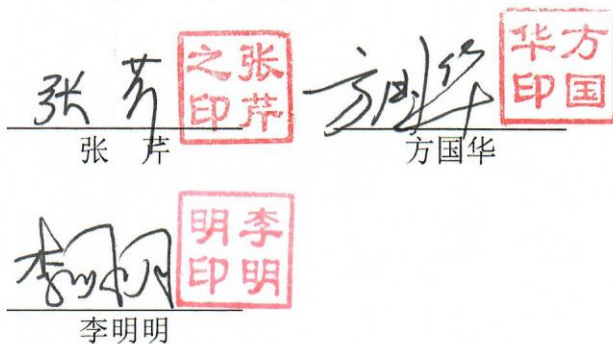 张芹 张芹之印 方国华 方国华印
张 芹 方国华
李明明 李明明印
李明明